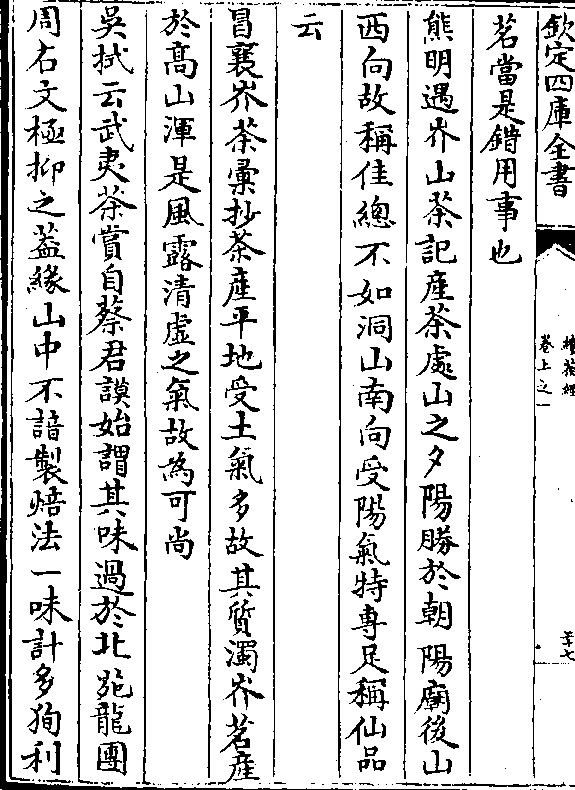 欽定四庫全書
續茶經
卷上之一
二十七
茗當是錯用事也
熊明遇岕山茶記産茶處山之夕陽勝於朝陽廟後山
西向故稱佳總不如洞山南向受陽氣特專足稱仙品
云
冒襄岕茶彚抄茶産平地受土氣多故其質濁岕茗産
於髙山渾是風露清虚之氣故為可尚
吳拭云武夷茶賞自蔡君謨始謂其味過於北苑龍團
周右文極抑之蓋緣山中不諳製焙法一味計多狥利